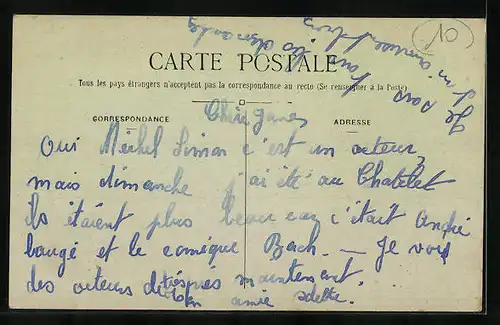 10
CARTE POSTALE
Tous les pays étrangers n'acceptent pas la correspondance au recto (Se renseigner à la Poste)
CORRESPONDANCE
ADRESSE
Chère
Oui Michel Simon c'est un acteur,
mais dimanche j'ai été au Chatelet
ils étaient plus beau car c'était André
baugé et le comique Bach. — Je vois
des acteurs très près maintenant.
ton amie
Je
m'amuse